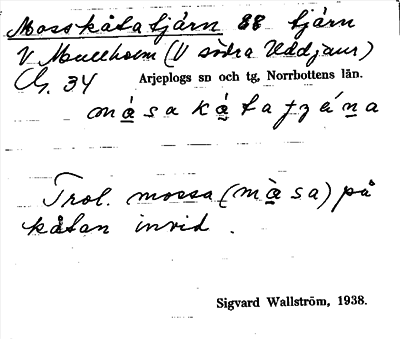 Mosskåtatjärn 88 tjärn
V Mullholm (V södra Uddjaur)
Ch. 34 Arjeplogs sn och tg, Norrbottens län.
Trol. mossa (mɑ̀sa) på
kåtan invid.
Sigvard Wallström, 1938.